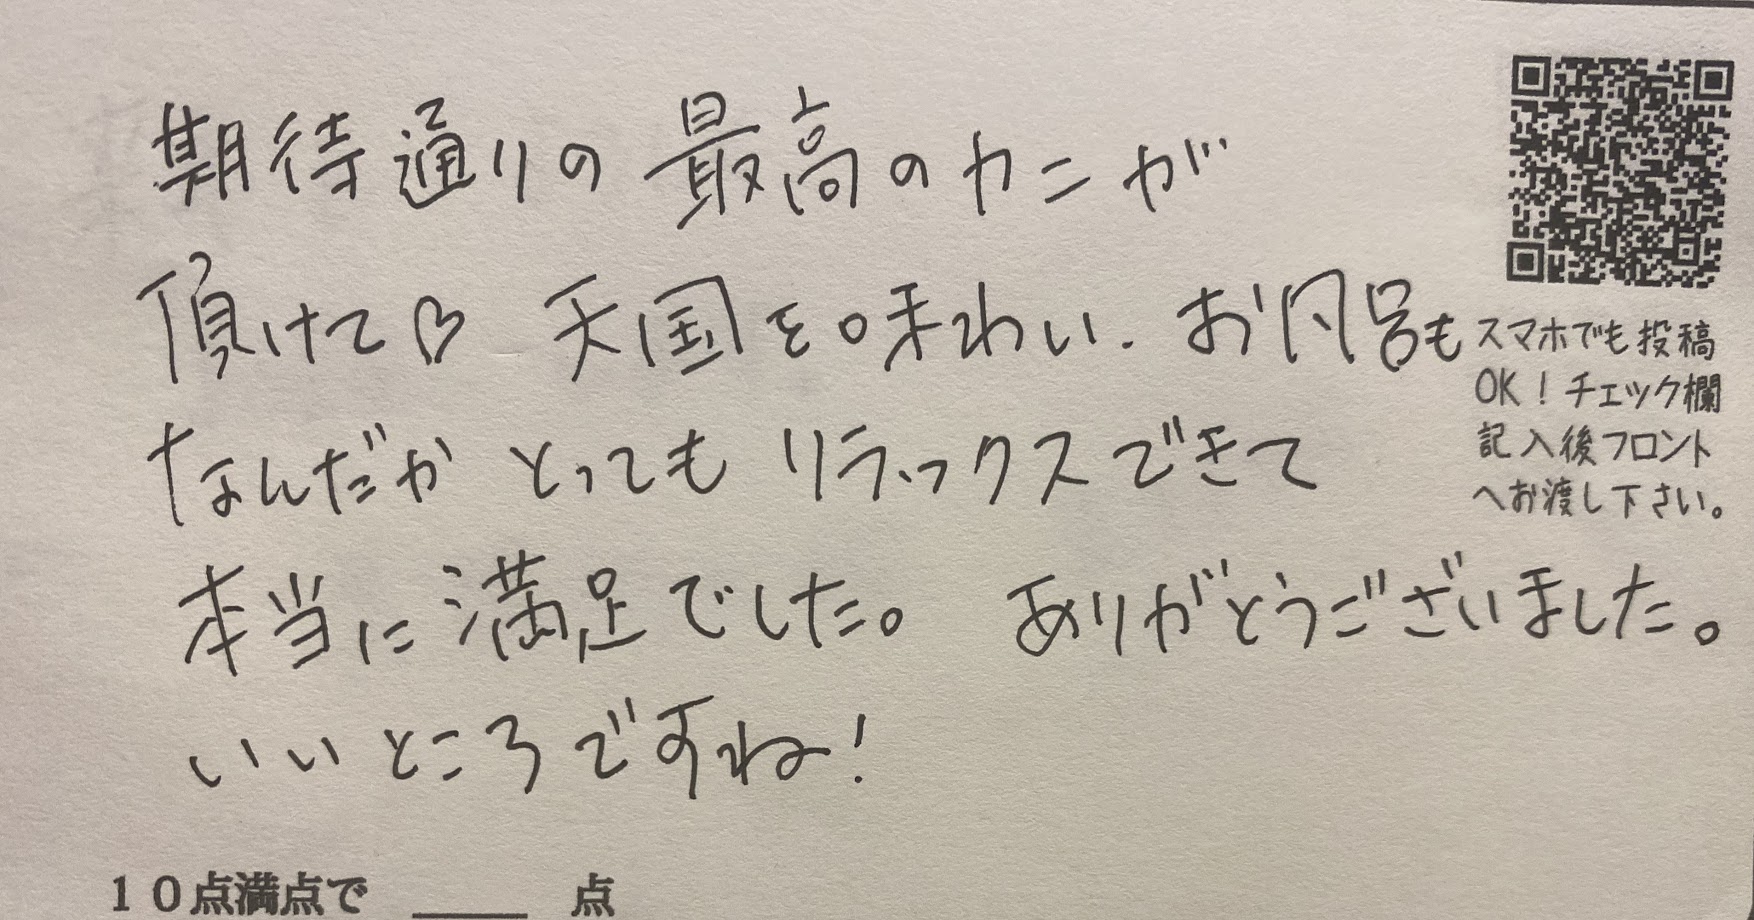 期待通りの最高のカニが
頂けて♡ 天国を味わい、お風呂も
なんだかとってもリラックスできて
本当に満足でした。 ありがとうございました。
いいところですね!
スマホでも投稿
OK!チェック欄
記入後フロント
へお渡し下さい。
10点満点で ____ 点